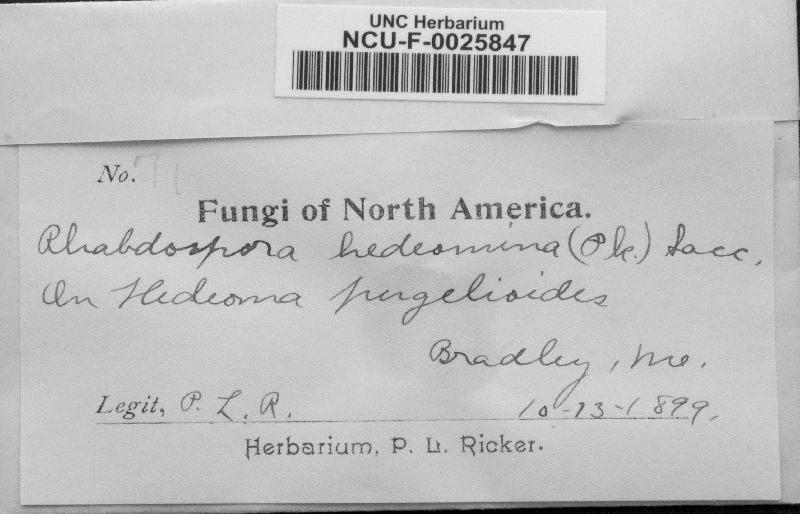 UNC Herbarium
NCU-F-0025847
No. 71
Fungi of North America.
Rhabdospora hedeomina (Pk.) Sacc.
On Hedeoma pugelioides
Bradley, Me.
Legit, P. L. R. 10-13-1899.
Herbarium, P. L. Ricker.